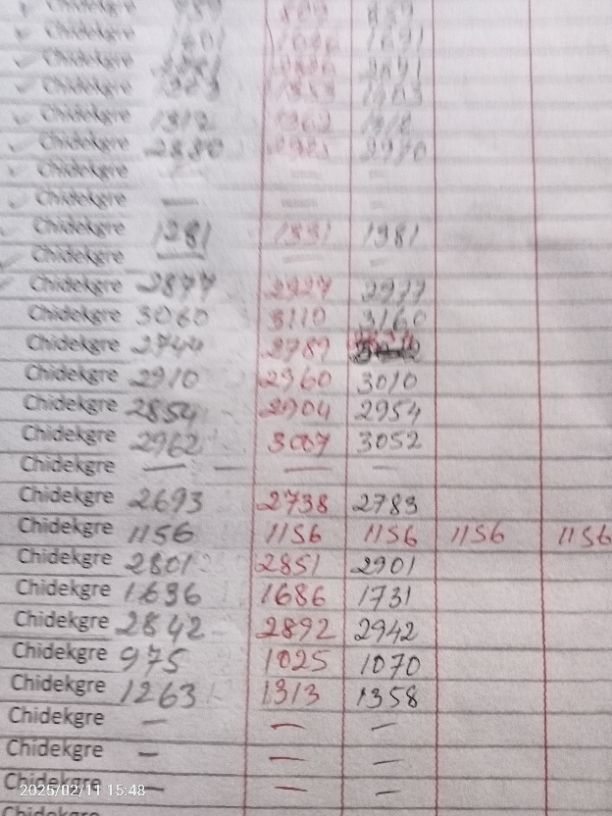 Chidekgre
Chidekgre 1691
Chidekgre
Chidekgre
Chidekgre
Chidekgre 2880
Chidekgre — — —
Chidekgre — — —
Chidekgre 1281 1331 1381
Chidekgre — — —
Chidekgre 2877 2927 2977
Chidekgre 3060 3110 3160
Chidekgre 2744 2789
Chidekgre 2910 2960 3010
Chidekgre 2854 2904 2954
Chidekgre 2962 3007 3052
Chidekgre — — — —
Chidekgre 2693 2738 2783
Chidekgre 1156 1156 1156 1156 1156
Chidekgre 2801 2851 2901
Chidekgre 1636 1686 1731
Chidekgre 2842 2892 2942
Chidekgre 975 1025 1070
Chidekgre 1263 1313 1358
Chidekgre — — —
Chidekgre — — —
Chidekgre — — —
2025/02/11 15:48
Chidekgre